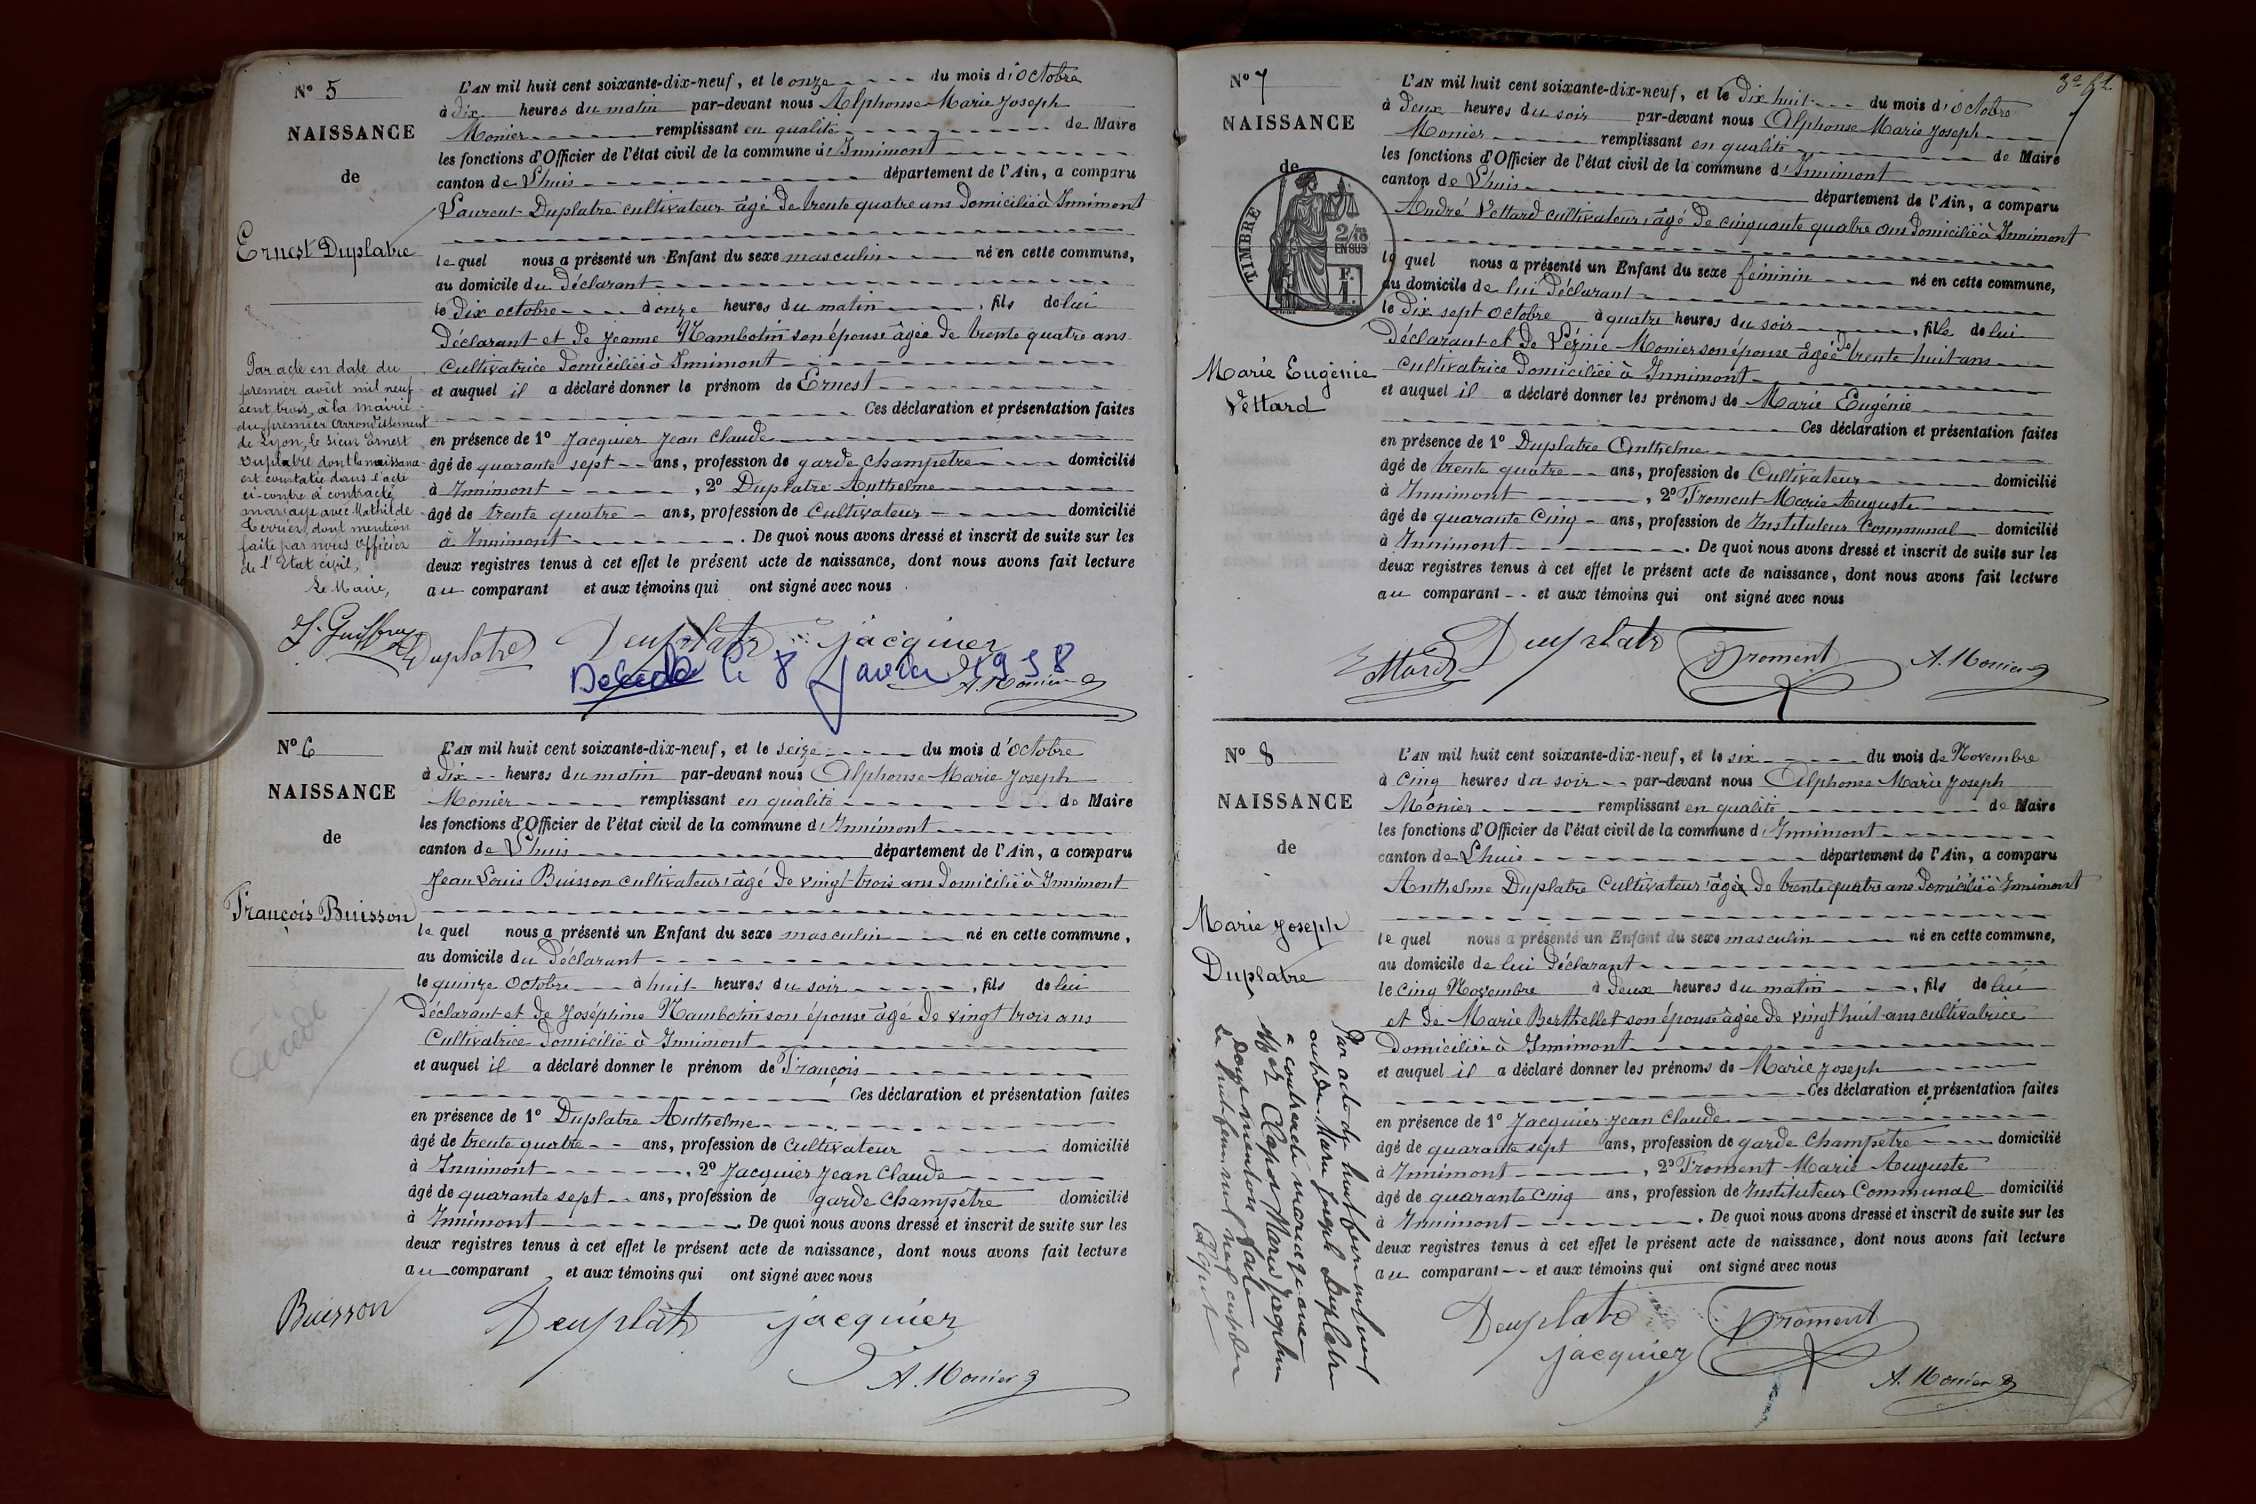 N° 5
NAISSANCE
de
Ernest Duplatre
Par acte en date du
premier août mil neuf
cent trois, à la mairie
du premier arrondissement
de Lyon, le sieur Ernest
Duplatre dont la naissance
est constatée dans l'acte
ci-contre a contracté
mariage avec Mathilde
Terrier, dont mention
faite par nous Officier
de l'Etat civil,
Le Maire,
L'AN mil huit cent soixante-dix-neuf, et le onze du mois d'octobre
à dix heures du matin par-devant nous Alphonse Marie Joseph
Monier remplissant en qualité de Maire
les fonctions d'Officier de l'état civil de la commune d'Innimont
canton de Lhuis département de l'Ain, a comparu
Laurent Duplatre cultivateur âgé de trente quatre ans domicilié à Innimont
le quel nous a présenté un Enfant du sexe masculin né en cette commune,
au domicile du Déclarant
le dix octobre à onze heures du matin, fils de lui
Déclarant et de Jeanne Nambotin son épouse âgée de trente quatre ans
cultivatrice domiciliée à Innimont
et auquel il a déclaré donner le prénom de Ernest
Ces déclaration et présentation faites
en présence de 1° Jacquier Jean Claude
âgé de quarante sept ans, profession de garde champêtre domicilié
à Innimont, 2° Duplatre Anthelme
âgé de trente quatre ans, profession de cultivateur domicilié
à Innimont. De quoi nous avons dressé et inscrit de suite sur les
deux registres tenus à cet effet le présent acte de naissance, dont nous avons fait lecture
au comparant et aux témoins qui ont signé avec nous
Duplatre Duplatre jacquier
Décédé le 8 janvier 1958
A. Monier
N° 6
NAISSANCE
de
François Buisson
Décédé
L'AN mil huit cent soixante-dix-neuf, et le seize du mois d'octobre
à dix heures du matin par-devant nous Alphonse Marie Joseph
Monier remplissant en qualité de Maire
les fonctions d'Officier de l'état civil de la commune d'Innimont
canton de Lhuis département de l'Ain, a comparu
Jean Louis Buisson cultivateur âgé de vingt trois ans domicilié à Innimont
le quel nous a présenté un Enfant du sexe masculin né en cette commune,
au domicile du Déclarant
le quinze octobre à huit heures du soir, fils de lui
Déclarant et de Joséphine Nambotin son épouse âgé de vingt trois ans
cultivatrice domicilié à Innimont
et auquel il a déclaré donner le prénom de François
Ces déclaration et présentation faites
en présence de 1° Duplatre Anthelme
âgé de trente quatre ans, profession de cultivateur domicilié
à Innimont, 2° Jacquier Jean Claude
âgé de quarante sept ans, profession de garde champêtre domicilié
à Innimont. De quoi nous avons dressé et inscrit de suite sur les
deux registres tenus à cet effet le présent acte de naissance, dont nous avons fait lecture
au comparant et aux témoins qui ont signé avec nous
Buisson Duplatre jacquier
A. Monier
N° 7
NAISSANCE
de
TIMBRE
2/10
EN SUS
F.
1.
Marie Eugénie
Vettard
L'AN mil huit cent soixante-dix-neuf, et le dix huit du mois d'octobre
à deux heures du soir par-devant nous Alphonse Marie Joseph
Monier remplissant en qualité de Maire
les fonctions d'Officier de l'état civil de la commune d'Innimont
canton de Lhuis département de l'Ain, a comparu
André Vettard cultivateur, âgé de cinquante quatre ans domicilié à Innimont
le quel nous a présenté un Enfant du sexe féminin né en cette commune,
au domicile de lui Déclarant
le dix sept octobre à quatre heures du soir, fille de lui
Déclarant et de Monier son épouse âgée de trente huit ans
cultivatrice domiciliée à Innimont
et auquel il a déclaré donner les prénoms de Marie Eugénie
Ces déclaration et présentation faites
en présence de 1° Duplatre Anthelme
âgé de trente quatre ans, profession de Cultivateur domicilié
à Innimont, 2° Froment Marie Auguste
âgé de quarante cinq ans, profession de Instituteur Communal domicilié
à Innimont. De quoi nous avons dressé et inscrit de suite sur les
deux registres tenus à cet effet le présent acte de naissance, dont nous avons fait lecture
au comparant et aux témoins qui ont signé avec nous
Vettard Duplatre Froment A. Monier
N° 8
NAISSANCE
de
Marie Joseph
Duplatre
Par acte du huit juin mil neuf
Marie Joseph Duplatre
a contracté mariage avec
Marie Joséphine
dont mention faite
L'AN mil huit cent soixante-dix-neuf, et le six du mois de Novembre
à cinq heures du soir par-devant nous Alphonse Marie Joseph
Monier remplissant en qualité de Maire
les fonctions d'Officier de l'état civil de la commune d'Innimont
canton de Lhuis département de l'Ain, a comparu
Anthelme Duplatre cultivateur âgé de trente quatre ans domicilié à Innimont
le quel nous a présenté un Enfant du sexe masculin né en cette commune,
au domicile de lui Déclarant
le cinq Novembre à deux heures du matin, fils de lui
et de Marie Berthellet son épouse âgée de vingt huit ans cultivatrice
domiciliée à Innimont
et auquel il a déclaré donner les prénoms de Marie Joseph
Ces déclaration et présentation faites
en présence de 1° Jacquier Jean Claude
âgé de quarante sept ans, profession de garde champêtre domicilié
à Innimont, 2° Froment Marie Auguste
âgé de quarante cinq ans, profession de Instituteur Communal domicilié
à Innimont. De quoi nous avons dressé et inscrit de suite sur les
deux registres tenus à cet effet le présent acte de naissance, dont nous avons fait lecture
au comparant et aux témoins qui ont signé avec nous
Duplatre Froment
jacquier
A. Monier